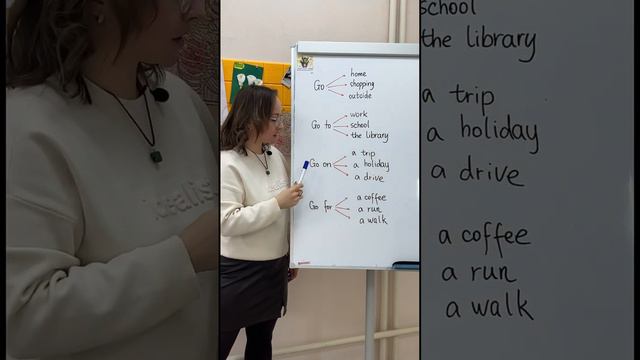 Go
home
shopping
outcide
Go to
work
school
the library
Go on
a trip
a holiday
a drive
Go for
a coffee
a run
a walk
school
the library
a trip
a holiday
a drive
a coffee
a run
a walk